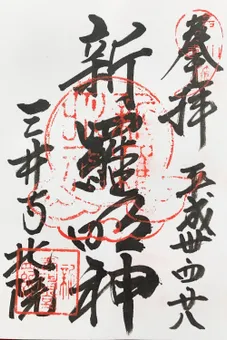 奉拝
平成丗四廿八
新羅明神
三井寺北院